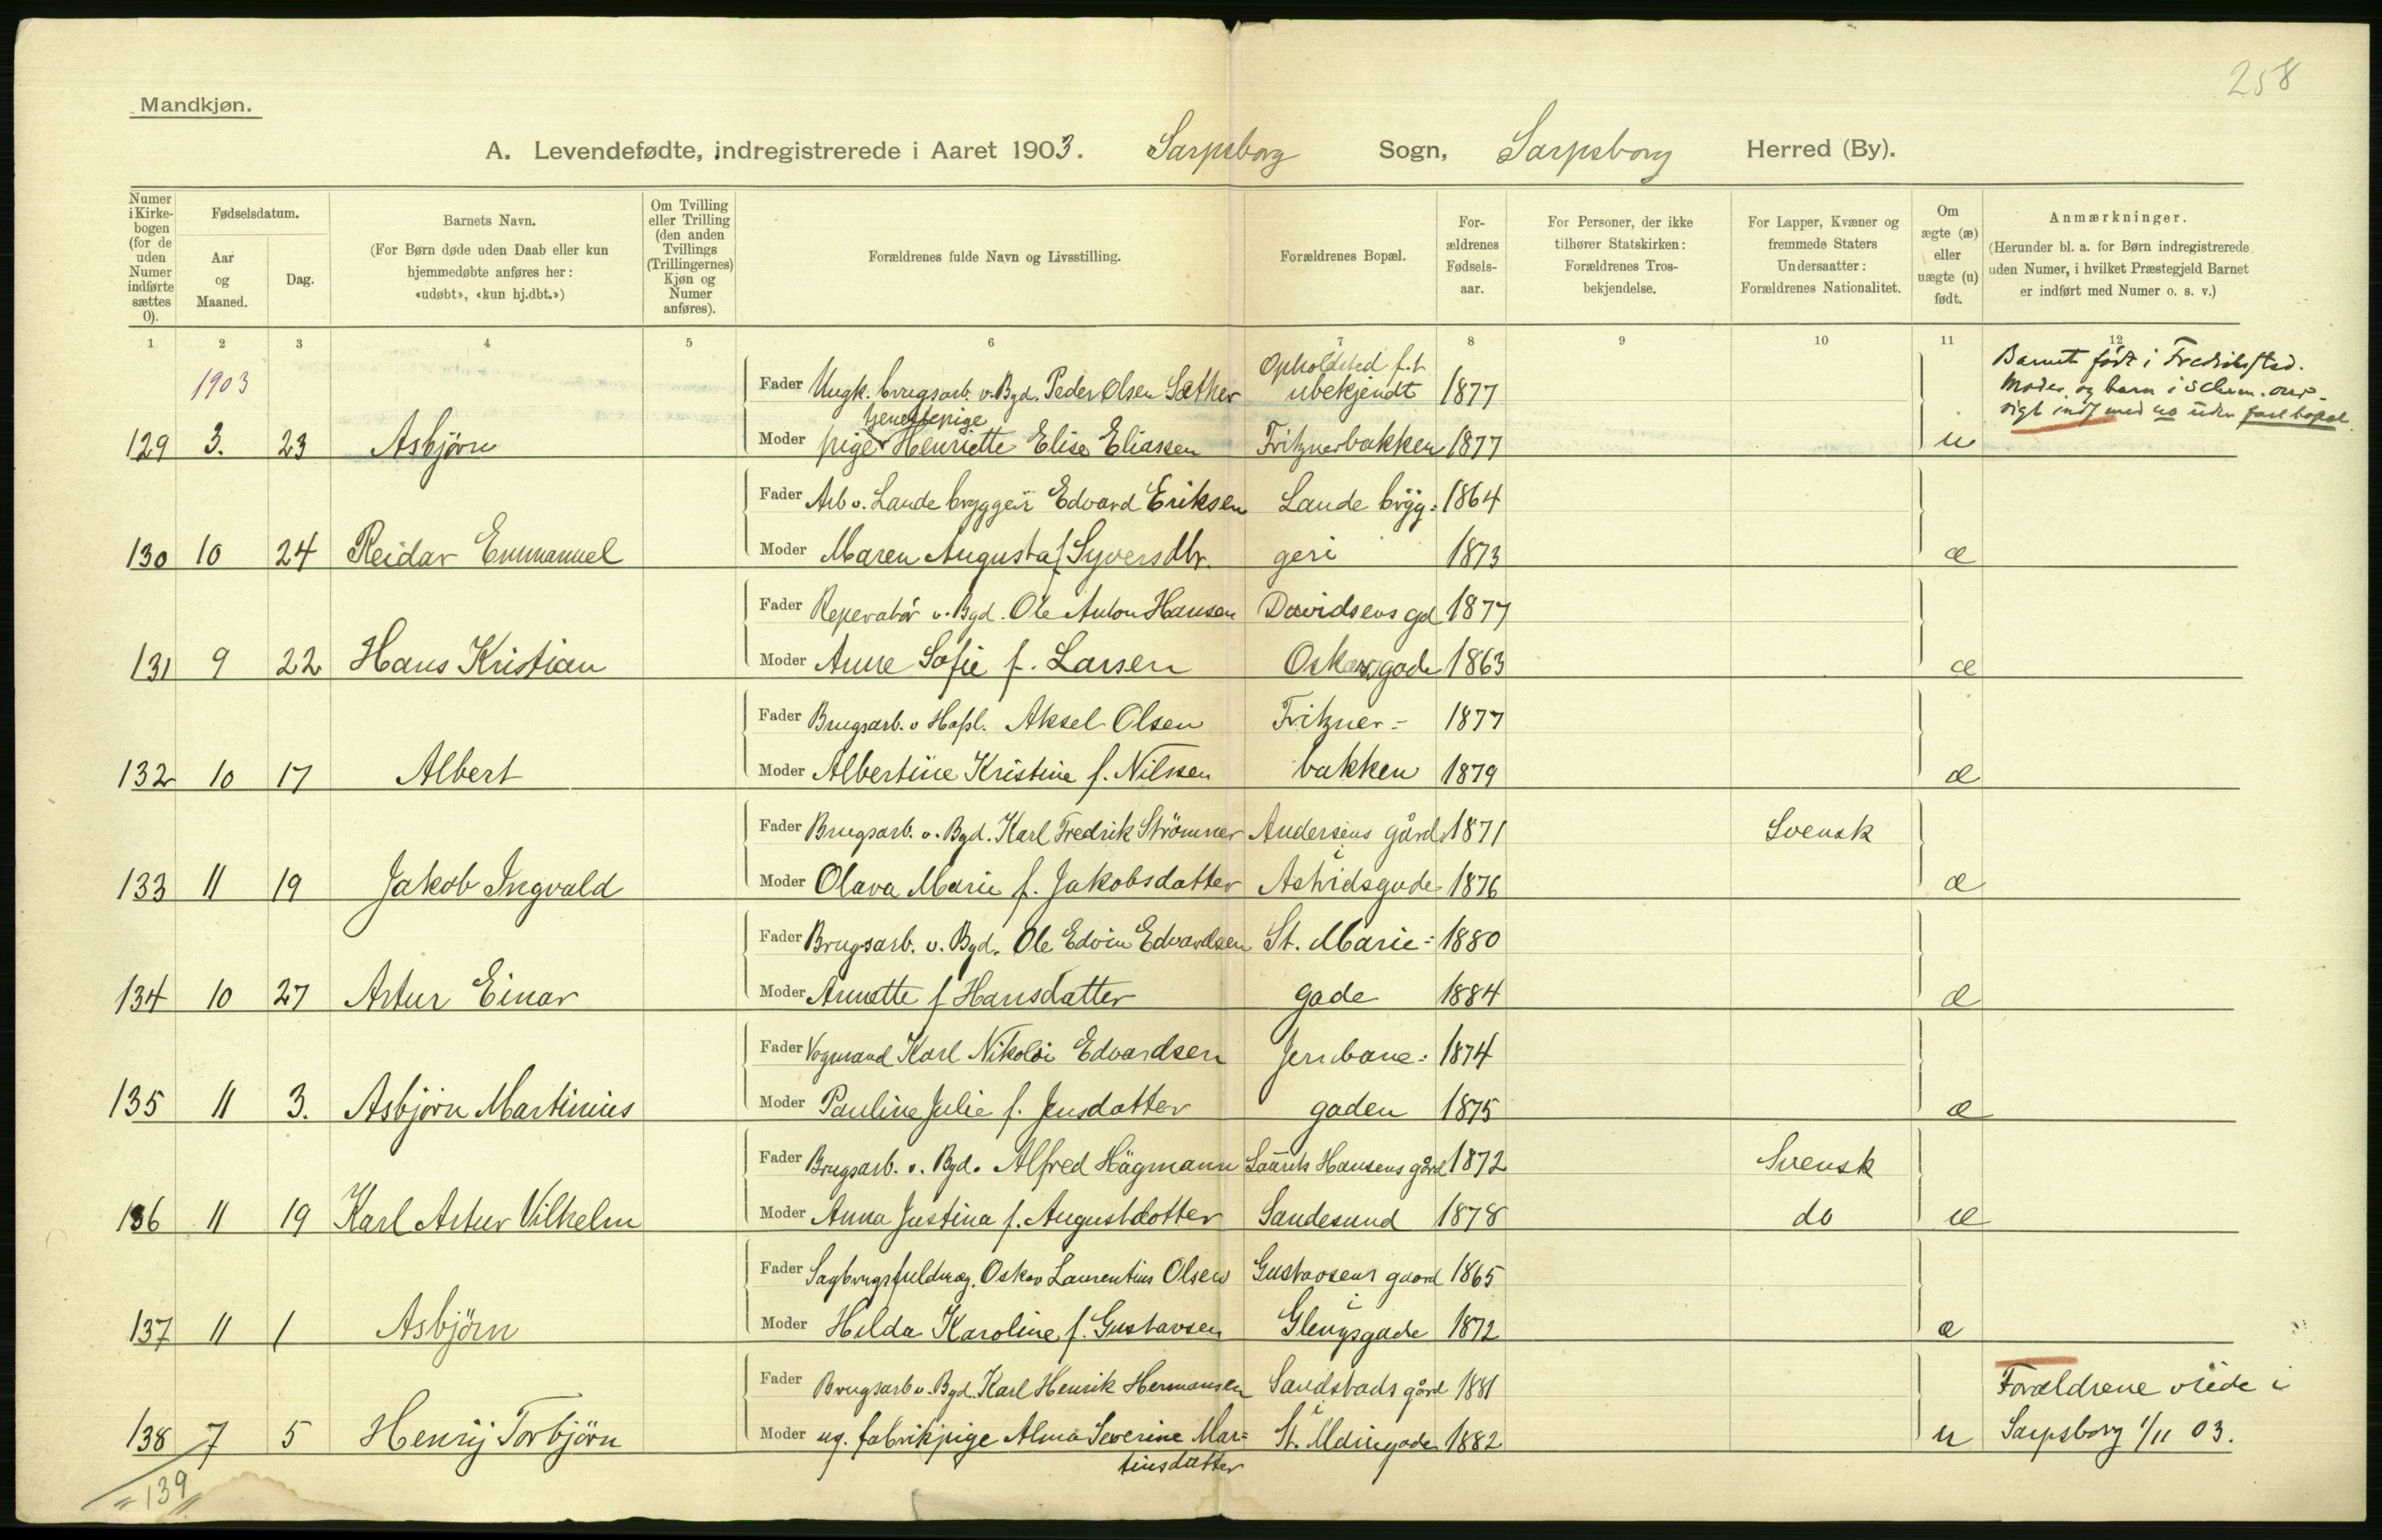 258
Mandkjøn.
A. Levendefødte, indregistrerede i Aaret 1903. Sarpsborg Sogn, Sarpsborg Herred (By).
Numer i Kirke-bogen (for de uden Numer indførte sættes 0).
Fødselsdatum.
Aar og Maaned.
Dag.
Barnets Navn.
(For Børn døde uden Daab eller kun hjemmedøbte anføres her: «udøbt», «kun hj.dbt.»)
Om Tvilling eller Trilling (den anden Tvillings (Trillingernes) Kjøn og Numer anføres).
Forældrenes fulde Navn og Livsstilling.
Forældrenes Bopæl.
For-ældrenes Fødsels-aar.
For Personer, der ikke tilhører Statskirken: Forældrenes Tros-bekjendelse.
For Lapper, Kvæner og fremmede Staters Undersaatter: Forældrenes Nationalitet.
Om ægte (æ) eller uægte (u) født.
Anmærkninger.
(Herunder bl. a. for Børn indregistrerede uden Numer, i hvilket Præstegjeld Barnet er indført med Numer o. s. v.)
1 2 3 4 5 6 7 8 9 10 11 12
1903
Fader Ungk. brugsarb. v. Bgd. Peder Olsen Sæther Opholdsted f.t. ubekjendt 1877
Barnet født i Fredrikstad.
Moder og barn i
med no uden fast bopæl.
tjenestepige
129 3. 23 Asbjörn Moder pige Henriette Elise Eliassen Fritznerbakken 1877 u
Fader Arb v. Lande bryggeri Edvard Eriksen Lande bryg= 1864
130 10 24 Reidar Emmanuel Moder Maren Augusta f. Syversdtr. geri 1873 æ
Fader Reperatör v. Bgd. Ole Anton Hansen Davidsens gd 1877
131 9 22 Hans Kristian Moder Anne Sofie f. Larsen Oskarsgade 1863 æ
Fader Brugsarb. v Hafsl. Aksel Olsen Fritzner= 1877
132 10 17 Albert Moder Albertine Kristine f. Nilssen bakken 1879 æ
Fader Brugsarb. v. Bgd. Karl Fredrik Strömner Andersens gård i 1871 Svensk
133 11 19 Jakob Ingvald Moder Olava Marie f. Jakobsdatter Astridsgade 1876 æ
Fader Brugsarb. v. Bgd. Ole Edvin Edvardsen St. Marie= 1880
134 10 27 Artur Einar Moder Annette f Hansdatter gade 1884 æ
Fader Vogmand Karl Nikolai Edvardsen Jernbane= 1874
135 11 3. Asbjörn Martinius Moder Pauline Julie f. Jensdatter gaden 1875 æ
Fader Brugsarb. v. Bgd. Alfred Hägmann Laurits Hansens gård 1872 Svensk
136 11 19 Karl Artur Vilhelm Moder Anna Justina f. Augustdotter Sandesund 1878 do æ
Fader Sagbrugsfuldmæg. Oskar Laurentius Olsen Gustavsens gaard i 1865
137 11 1 Asbjörn Moder Hilda Karoline f. Gustavsen Glengsgade 1872 æ
Fader Brugsarb v. Bgd. Karl Henrik Hermansen Sandstads gård i 1881 Forældrene viede i
138 7 5 Henrij Torbjörn Moder ug. fabrikpige Alma Severine Mar= St. Mariegade 1882 u Sarpsborg 1/11 03.
tinsdatter
139